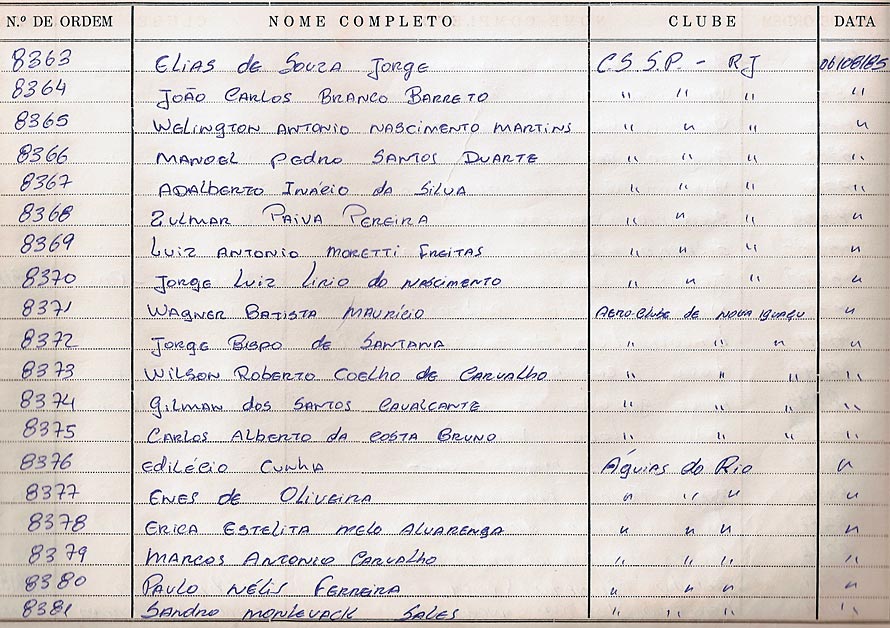 N.º DE ORDEM NOME COMPLETO CLUBE DATA
8363 Elias de Souza Jorge C.S.S.P. - RJ 06/08/85
8364 João Carlos Branco Barreto " " " "
8365 Welington Antonio Nascimento Martins " " " "
8366 Manoel Pedro Santos Duarte " " " "
8367 Adalberto Inácio da Silva " " " "
8368 Zulmar Paiva Pereira " " " "
8369 Luiz Antonio Moretti Freitas " " " "
8370 Jorge Luiz Lirio do Nascimento " " " "
8371 Wagner Batista Maurício Aero-Clube de Nova Iguaçu "
8372 Jorge Bispo de Santana " " " "
8373 Wilson Roberto Coelho de Carvalho " " " "
8374 Gilman dos Santos Cavalcante " " " "
8375 Carlos Alberto da Costa Bruno " " " "
8376 Edilécio Cunha Águias do Rio "
8377 Enes de Oliveira " " " "
8378 Erica Estelita Melo Alvarenga " " " "
8379 Marcos Antonio Carvalho " " " "
8380 Paulo Nélis Ferreira " " " "
8381 Sandro Monlevack Sales " " " "